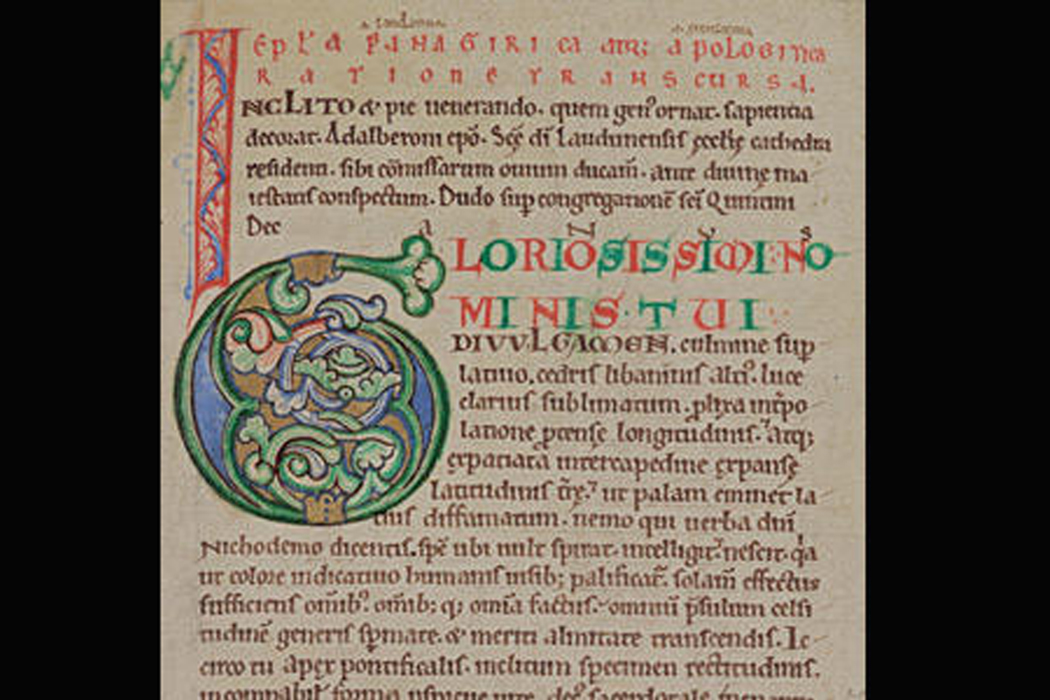 Ep̄l'a PANAGIRICA atq; apoLOGITICa
RATIONE TRANSCURSA.
INCLITO & pie uenerando. quem gen' ornat. sapientia
decorat. Adalberoni ep̄o. Sc̄e dī Laudunensis ęcclię cathedrā
residenti. sibi cōmissarum ouium ducatū. ante diuinę ma
iestatis conspectum. Dudo sup congregationē sc̄i Quintini
Dec
GLORIOSISSIMI NO
MINIS TUI
DIVVLGAMEN. culmine sup
latiuo. cedris libaninis alti. luce
clarius sublimatum. plixa intpo
latione ptense longitudinis. atq;
expatiata intercapedine expansę
latitudinis ut palam eminet la
tius diffamatum. nemo qui uerba dn̄i
Nichodemo dicentis. sp̄c ubi uult spirat. intelligit. nescit. qa
ut colore indicatiuo humanis uisib; palificat. solam effectus
sufficiens om̄ib; q; omīa factus. omniū p̄sulum celsi
tudinē generis spmate. & meriti almitate transcendis. Ic
circo tu apex pontificalis. inclitum specimen rectitudinis.